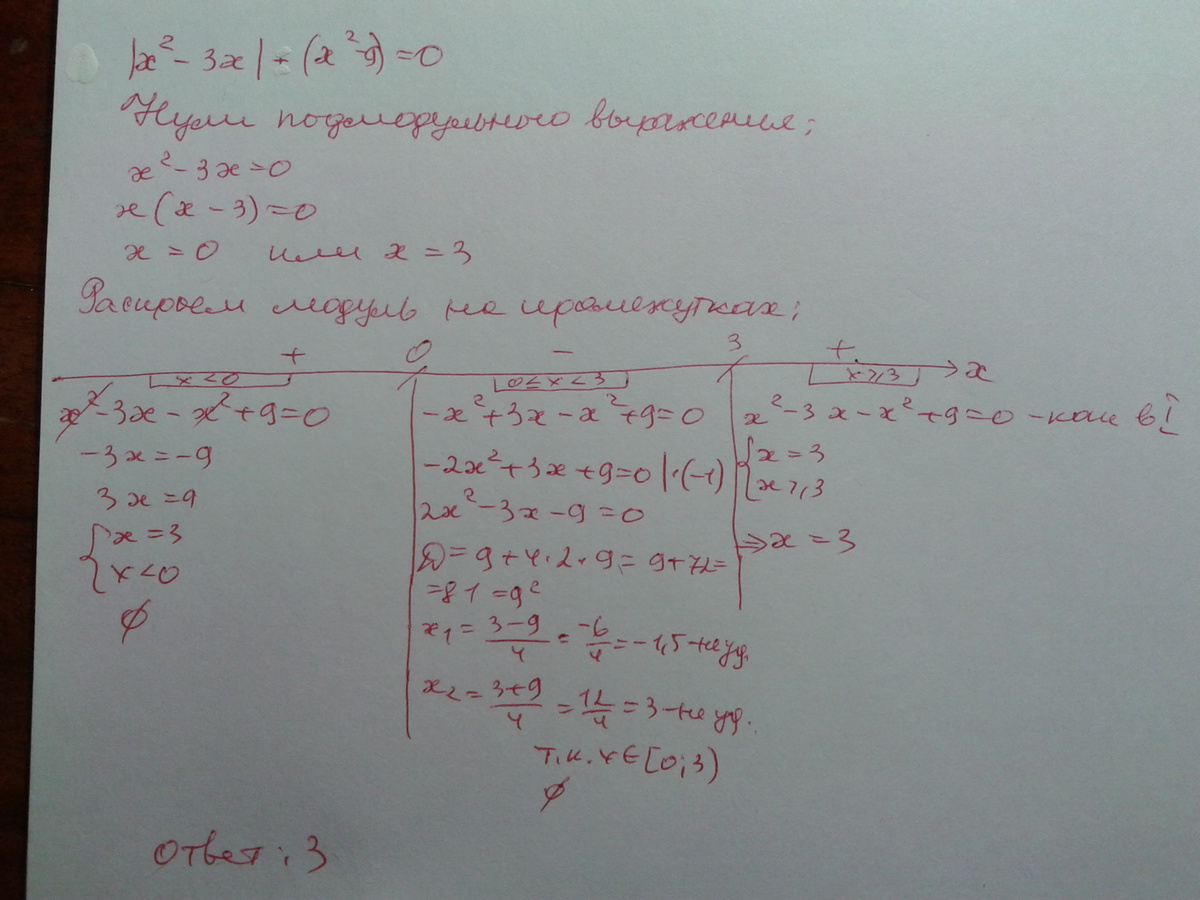 |x² - 3x| + (x² - 9) = 0
Нули подмодульного выражения:
x² - 3x = 0
x(x - 3) = 0
x = 0 или x = 3
Раскроем модуль на промежутках:
+ 0 - 3 +
x < 0 0 ≤ x < 3 x ≥ 3 x
x² - 3x - x² + 9 = 0
-3x = -9
3x = 9
{ x = 3
x < 0
∅
-x² + 3x - x² + 9 = 0
-2x² + 3x + 9 = 0 |·(-1)
2x² - 3x - 9 = 0
D = 9 + 4·2·9 = 9 + 72 =
= 81 = 9²
x₁ = (3-9)/4 = -6/4 = -1,5 - не уд.
x₂ = (3+9)/4 = 12/4 = 3 - не уд.
т.к. x ∈ [0; 3)
∅
x² - 3x - x² + 9 = 0 - как в I
{ x = 3
x ≥ 3
⇒ x = 3
Ответ: 3